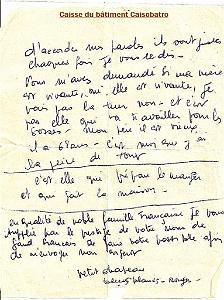 Caisse du bâtiment Caisobatro
d'accorder mes paroles ils sont jamais
chaques fois je vous le dis.
Vous m'avez demandé si ma mère
est vivante, oui elle est vivante, je
vois pas la tuer non - et c'est
pas elle qui va travailler pour les
gosses. Mon père il est vieux
il a 61 ans. C'est moi que j'ai
la peine de
c'est elle qui prépare le manger
et qui fait la maison.
en qualité de noble famille Française je vous
supplie par le prestige de votre nom de
grand français de faire votre possible afin
de m'envoyer mon argent
Petit chapeau
bleus blancs - Rouge -